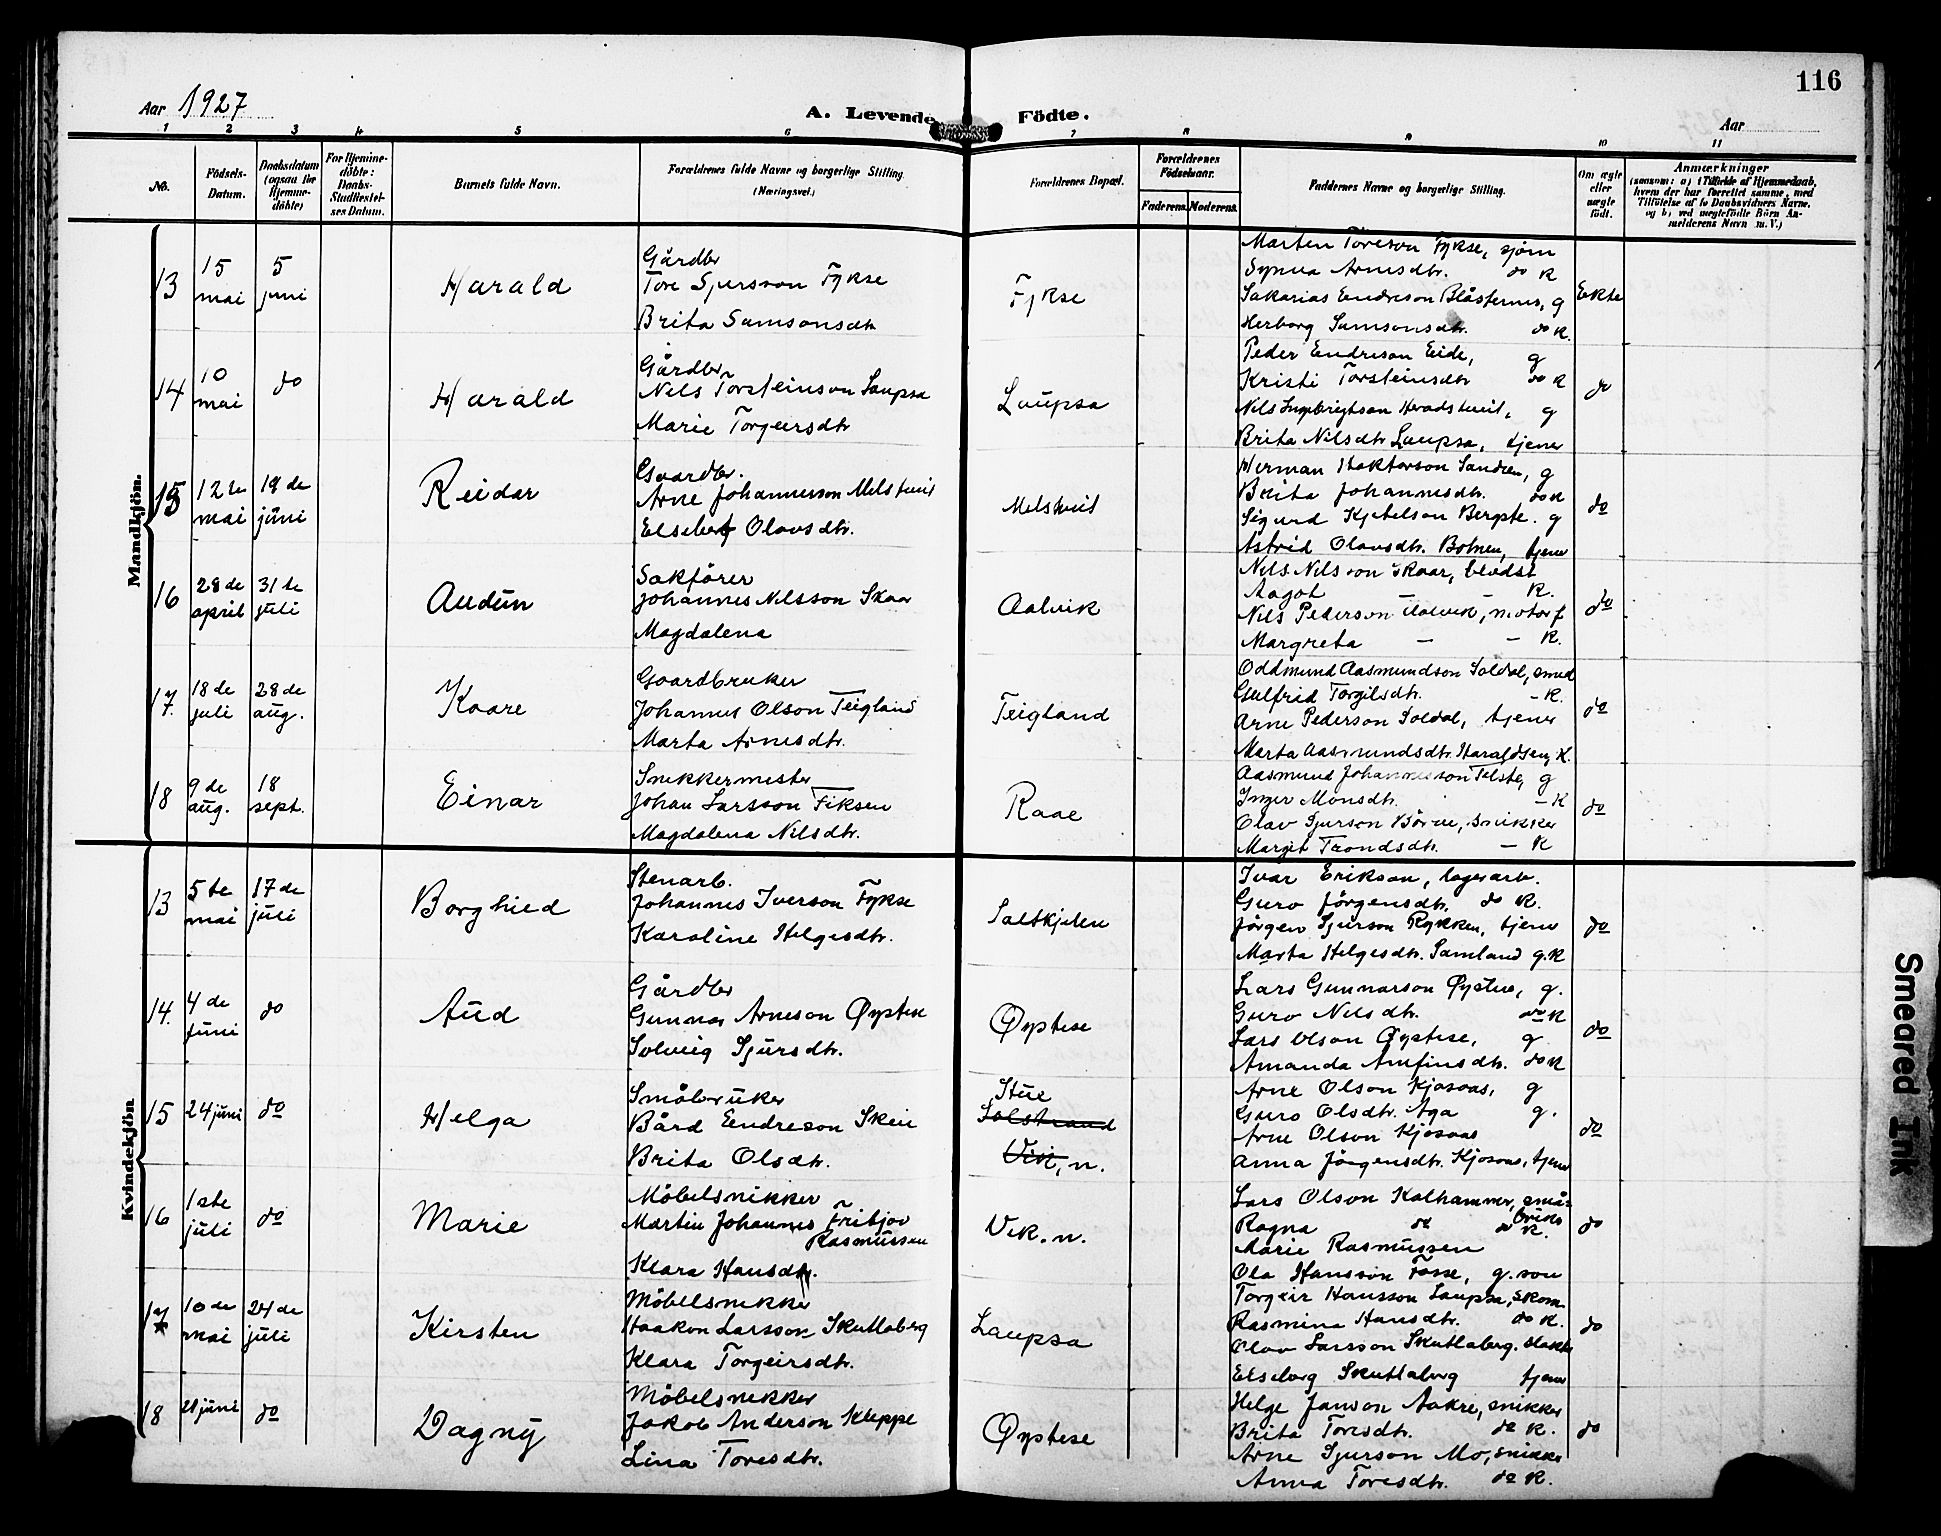 116
Aar 1927
A. Levende Fødte.
Aar
1 2 3 4 5 6 7 8 9 10 11
No.
Fødsels-Datum.
Daabsdatum (ogsaa for Hjemme-døbte)
For Hjemme-døbte: Daabs-Stadfæstel-ses Datum.
Barnets fulde Navn.
Forældrenes fulde Navne og borgerlige Stilling. (Næringsvei.)
Forældrenes Bopæl.
Forældrenes Fødselsaar.
Faderens. Moderens.
Faddernes Navne og borgerlige Stilling.
Om ægte eller uægte født.
Anmærkninger
(saasom: a) i Tilfælde af Hjemmedaab, hvem der har forrettet samme, med Tilføielse af to Daabsvidners Navne, og b) ved uægtefødte Børn An-melderens Navn m. V.)
Mandkjön.
13
15 mai
5 juni
Harald
Gårdbr
Tore Sjursson Fykse
Brita Samsonsdtr
Fykse
Marten Toreson Fykse, sjøm
Synva Arnesdtr. do K
Sakarias Endreson Blåsternes, g
Herborg Samsonsdtr. do K.
Ekte
14
10 mai
do
Harald
Gårdbr
Nels Torsteinson Laupsa
Marie Torgeirsdtr
Laupsa
Peder Endreson Eide, g
Kristi Torsteinsdtr do K
Nils Ingebrigtson Heradstveit, g
Brita Nilsdtr Laupsa, tjener
do
15
12te mai
19de juni
Reidar
Gaardbr.
Arne Johannesson Melstveit
Elseberg Olavsdtr.
Melstveit
Herman Haktorson Sandven, g
Brita Johannesdtr. do K
Sigurd Kjetelson Bergste. g
Astrid Olavsdtr. Botnen, tjener
do
16
28de april
31te juli
Audun
Sakfører
Johannes Nilsson Skaar
Magdalena
Aalvik
Nils Nilsson Skaar, bladst
Aagot K.
Nils Pederson Aalvik, motorf
Margreta — — K.
do
17.
18de juli
28de aug.
Kaare
Gaardbruker
Johannes Olson Teigland
Marta Arnesdtr.
Teigland
Oddmund Aasmundson Soldal, smed
Gulfrid Torgilsdtr. — K.
Arne Pederson Soldal, tjener
Marta Aasmundsdtr. Haraldsen, K.
do
18
9de aug.
18 sept.
Einar
Snekkermester
Johan Larsson Fiksen
Magdalena Nilsdtr.
Raae
Aasmund Johannesson Tolste, g
Inger Monsdtr. — K
Olav Sjurson Børve, snikker
Margit Trondsdtr. — K
do
Kvindekjön
13
5te mai
17de juli
Borghild
Stenarb.
Johannes Iverson Fykse
Karoline Helgesdtr.
Saltkjelen
Ivar Erikson, lagerarb.
Guro Jørgensdtr. do K.
Jørgen Sjurson Rykken, tjener
Marta Helgesdtr. Samland g. K
do
14.
4de juni
do
Aud
Gårdbr
Gunnar Arneson Øystese
Solveig Sjursdtr.
Øystese
Lars Gunnarson Øystese, g.
Guro Nilsdtr. do K
Lars Olson Øystese, g
Amanda Amfinsdtr. do K
do
15
24 juni
do
Helga
Småbruker
Bård Endreson Skeie
Brita Olsdtr.
Stue
Solstrand
Vik, n.
Arne Olson Kjosaas, g
Guro Olsdtr. Aga g.
Arne Olson Kjosaas
Anna Jørgensdtr. Kjosaas, tjener
do
16
1ste juli
do
Marie
Møbelsnikker
Martin Johannes Fritjov Rasmussen
Klara Hansdtr.
Vik. n.
Lars Olson Kolhammer, småbruks
Ragna do do K.
Marie Rasmussen
Ola Hansson Fosse, g. son
do
17
10de mai
24de juli
Kirsten
Møbelsnikker
Haakon Larsson Skutlaberg
Klara Torgeirsdtr.
Laupsa
Torgeir Hansson Laupsa, skom.
Rasmina Hansdtr. do K.
Olav Larsson Skutlaberg. slakter
Elseborg Skutlaberg tjener
do
18
21 juni
do
Dagny
Møbelsnikker
Jakob Anderson Kleppe
Lina Toresdtr.
Øystese
Helge Janson Aakre, snikker
Brita Toresdtr. do K.
Arne Sjurson Mo, snikker
Anna Toresdtr. do K.
do
Smeared Ink